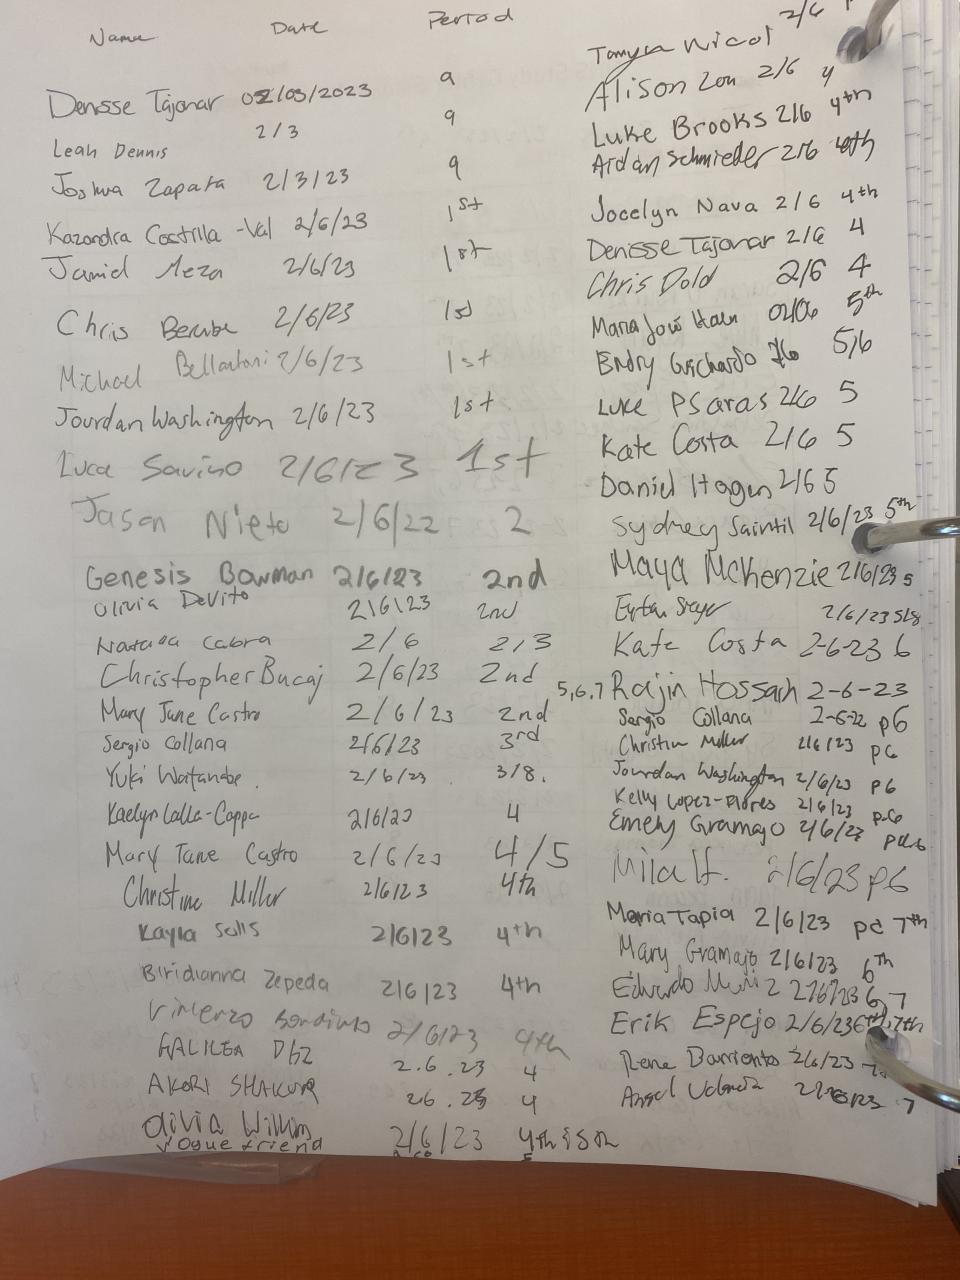 Name Date Period
Denisse Tajonar 02/03/2023 9
Leah Dennis 2/3 9
Joshua Zapata 2/3/23 9
Kazandra Costilla-Val 2/6/23 1st
Jamid Meza 2/6/23 1st
Chris Berube 2/6/23 1st
Michael Bellantoni 2/6/23 1st
Jourdan Washington 2/6/23 1st
Luca Savino 2/6/23 1st
Jason Nieto 2/6/22 2
Genesis Bowman 2/6/23 2nd
Olivia DeVito 2/6/23 2nd
Cabra 2/6 2/3
Christopher Bucaj 2/6/23 2nd
Mary Jane Castro 2/6/23 2nd
Sergio Collana 2/6/23 3rd
Yuki Watanabe 2/6/23 3/8.
Kaelyn Lalla-Coppa 2/6/23 4
Mary Jane Castro 2/6/23 4/5
Christine Miller 2/6/23 4th
Kayla Solis 2/6/23 4th
Biridianna Zepeda 2/6/23 4th
Vincenzo 2/6/23 4th
GALILEA DGZ 2.6.23 4
AKORI SHAKUR 26.23 4
Olivia 2/6/23 4th & 5th
Vogue friend
Tamyra Nicol 2/6
Alison Zou 2/6 4
Luke Brooks 2/6 4th
Aidan Schmieder 2/6 4th
Jocelyn Nava 2/6 4th
Denisse Tajonar 2/6 4
Chris Dold 2/6 4
Maria José 02/06 5th
Endry 5/6
Luke Psaras 2/6 5
Kate Costa 2/6 5
Daniel Hagen 2/6 5
Sydney Saintil 2/6/23 5th
Maya McKenzie 2/6/23 5
2/6/23 5/8
Kate Costa 2-6-23 6
5,6,7 Rajin Hossain 2-6-23
Sergio Collana 2-6-22 p6
Christine Miller 2/6/23 p6
Jourdan Washington 2/6/23 p6
Kelly Lopez-Flores 2/6/23 p.6
Emely Gramajo 2/6/23
Mila H. 2/6/23 p6
Maria Tapia 2/6/23 7th
Mary Gramajo 2/6/23 6th
Eduardo 2/6/23 6,7
Erik Espejo 2/6/23 6th,7th
Rene Barrientos 2/6/23
Angel Valencia 7